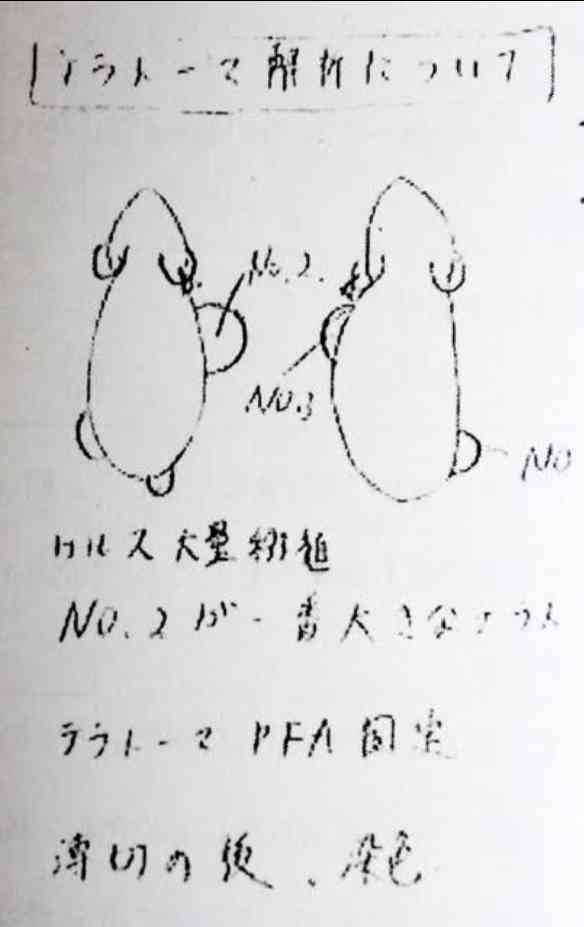 テラトーマ解析について
No.2.
No.3
No
セルス大量移植
No.2が一番大きなテラト
テラトーマ PFA固定
薄切の後、染色